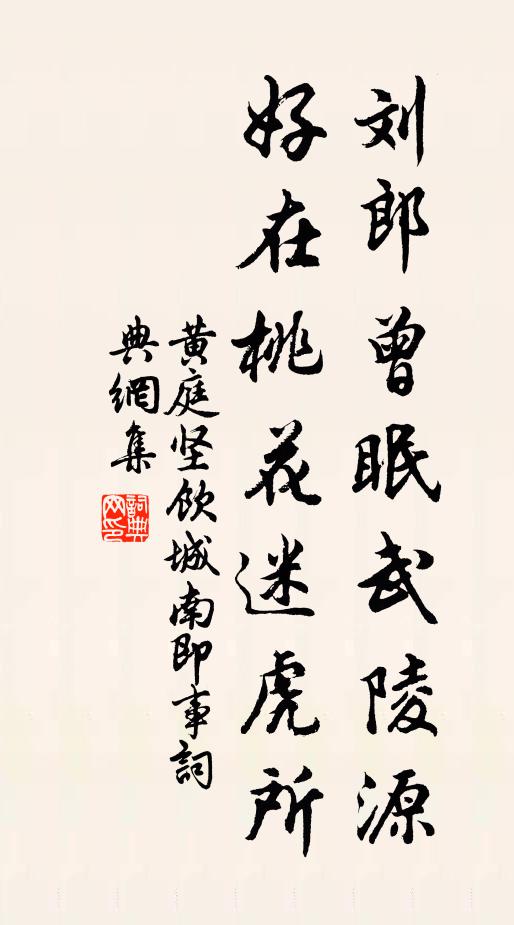 刘郎曾眠武陵源
好在桃花迷虎所
黄庭坚饮城南即事詞
典網集
詞典網印